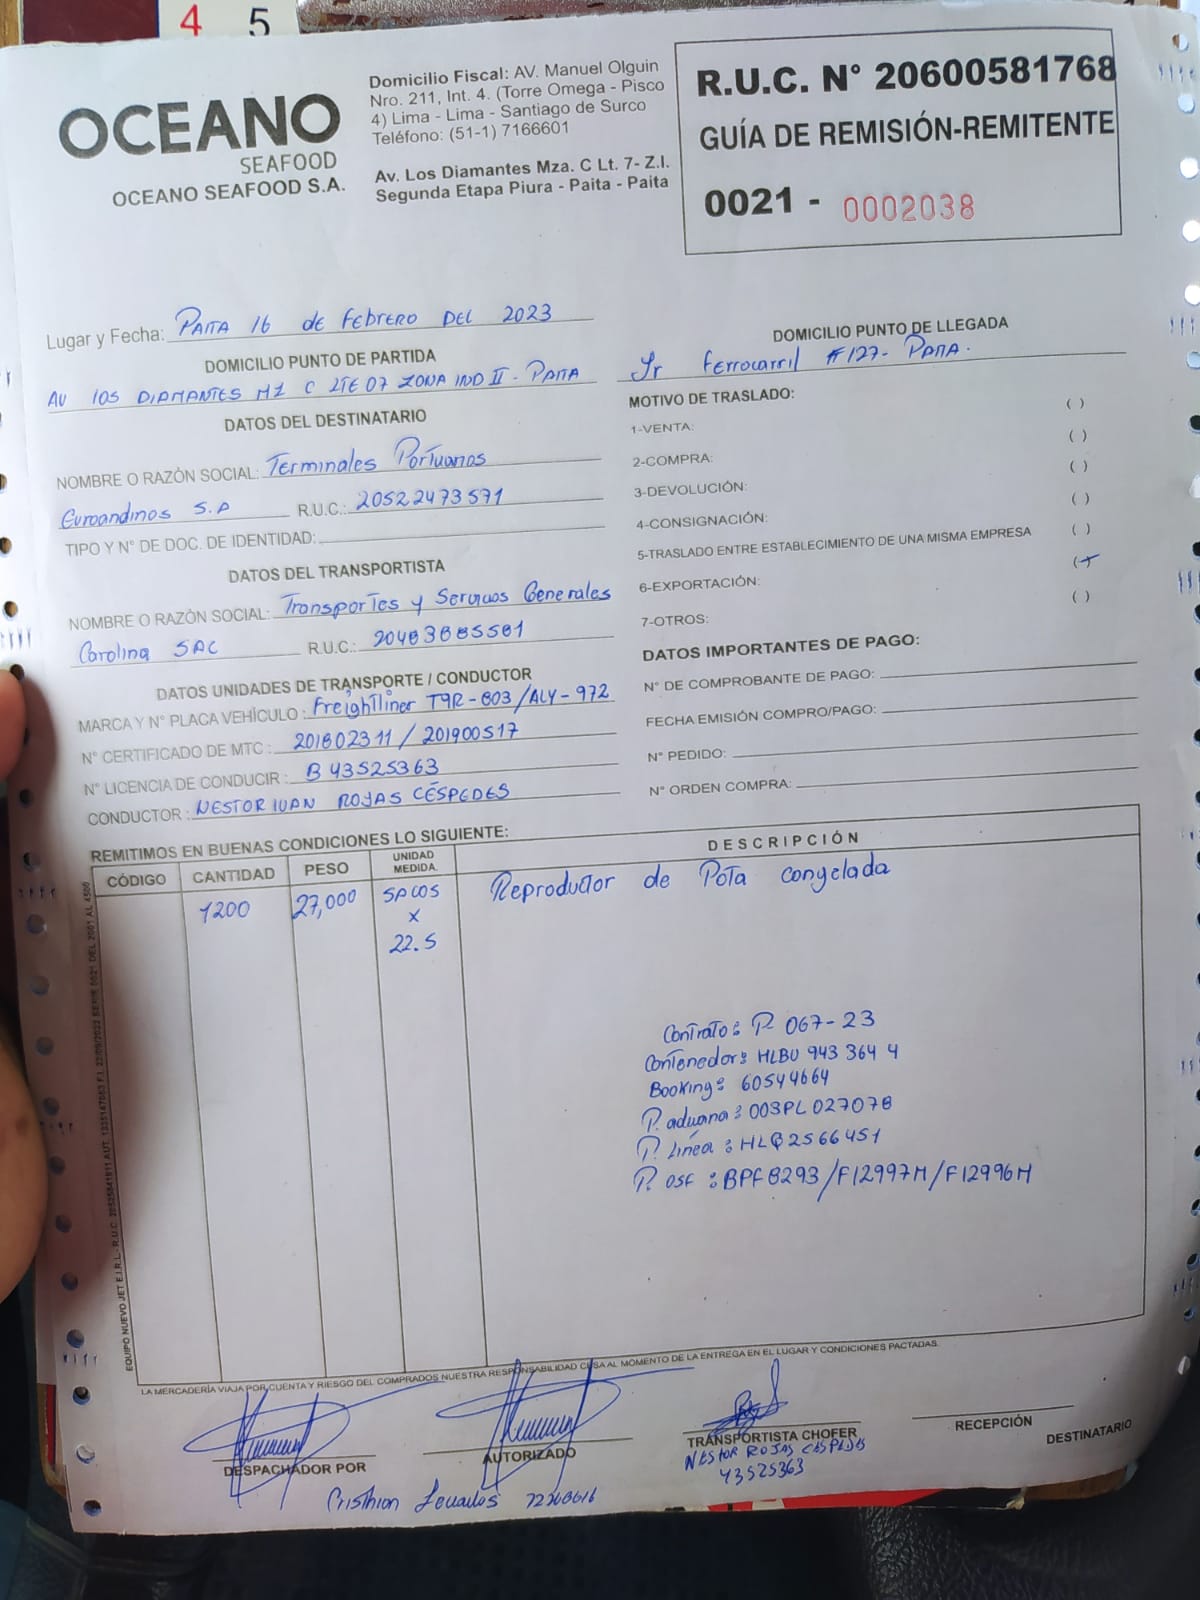 4 5
OCEANO
SEAFOOD
OCEANO SEAFOOD S.A.
Domicilio Fiscal: AV. Manuel Olguin
Nro. 211, Int. 4. (Torre Omega - Pisco
4) Lima - Lima - Santiago de Surco
Teléfono: (51-1) 7166601
Av. Los Diamantes Mza. C Lt. 7- Z.I.
Segunda Etapa Piura - Paita - Paita
R.U.C. N° 20600581768
GUÍA DE REMISIÓN-REMITENTE
0021 - 0002038
Lugar y Fecha: PAITA 16 de febrero DEL 2023
DOMICILIO PUNTO DE PARTIDA
AV LOS DIAMANTES MZ C LTE 07 ZONA IND II - PAITA
DOMICILIO PUNTO DE LLEGADA
Jr Ferrocarril #127- PAITA.
DATOS DEL DESTINATARIO
NOMBRE O RAZÓN SOCIAL: Terminales Portuarios
Euroandinos S.A R.U.C.: 20522473571
TIPO Y N° DE DOC. DE IDENTIDAD:
DATOS DEL TRANSPORTISTA
NOMBRE O RAZÓN SOCIAL: Transportes y Servicios Generales
Carolina SAC R.U.C.: 20483885581
DATOS UNIDADES DE TRANSPORTE / CONDUCTOR
MARCA Y N° PLACA VEHÍCULO : Freightliner T9R-803/ALY-972
N° CERTIFICADO DE MTC : 201802311 / 201900517
N° LICENCIA DE CONDUCIR : B 43525363
CONDUCTOR : NESTOR IVAN ROJAS CÉSPEDES
MOTIVO DE TRASLADO:
1-VENTA: ( )
2-COMPRA: ( )
3-DEVOLUCIÓN: ( )
4-CONSIGNACIÓN: ( )
5-TRASLADO ENTRE ESTABLECIMIENTO DE UNA MISMA EMPRESA ( )
6-EXPORTACIÓN: (
7-OTROS: ( )
DATOS IMPORTANTES DE PAGO:
N° DE COMPROBANTE DE PAGO:
FECHA EMISIÓN COMPRO/PAGO:
N° PEDIDO:
N° ORDEN COMPRA:
REMITIMOS EN BUENAS CONDICIONES LO SIGUIENTE:
CÓDIGO CANTIDAD PESO UNIDAD MEDIDA. DESCRIPCIÓN
1200 27,000 SACOS Reproductor de Pota congelada
x
22.5
Contrato: P. 067-23
Contenedor: HLBU 943 364 4
Booking: 60544664
P. aduana: 003PL027078
P. Línea : HLB2566451
P. OSF : BPF8293/F12997M/F12996M
LA MERCADERÍA VIAJA POR CUENTA Y RIESGO DEL COMPRADOS NUESTRA RESPONSABILIDAD CESA AL MOMENTO DE LA ENTREGA EN EL LUGAR Y CONDICIONES PACTADAS.
DESPACHADOR POR
AUTORIZADO
TRANSPORTISTA CHOFER
RECEPCIÓN
DESTINATARIO
NESTOR ROJAS CESPEDES
43525363
Cristhian